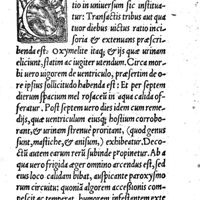 tio in uniuersum sic institua
tur: Transactis tribus aut qua
tuor diebus uictus ratio inci
soria & extenuans præscri
benda est. Oxymelite itaq;, & ijs quæ urinam
eliciunt, statim ac iugiter utendum. Circa mor
bi uero uigorem de uentriculo, præsertim de o
re ipsius sollicitudo habenda est: Et per septem
dierum spacium mel rosaceū in aqua calida of
feratur. Post septem uero dies idem cum reme
dijs, quæ uentriculum eiusq; hostium corrobo-
rant, & urinam strenue proritant, (quod genus
sunt, mastiche, & anisum,) exhibeatur. Deco-
ctū autem earum rerū subinde propinetur. Ab a
qua uero frigida æger omnino arcendus est, sed
eius loco calidam bibat, auspicante paroxysmo
rum circuitu: quoniā algorem accessionis com-
pescit ac temperat, humorem infestantem exte